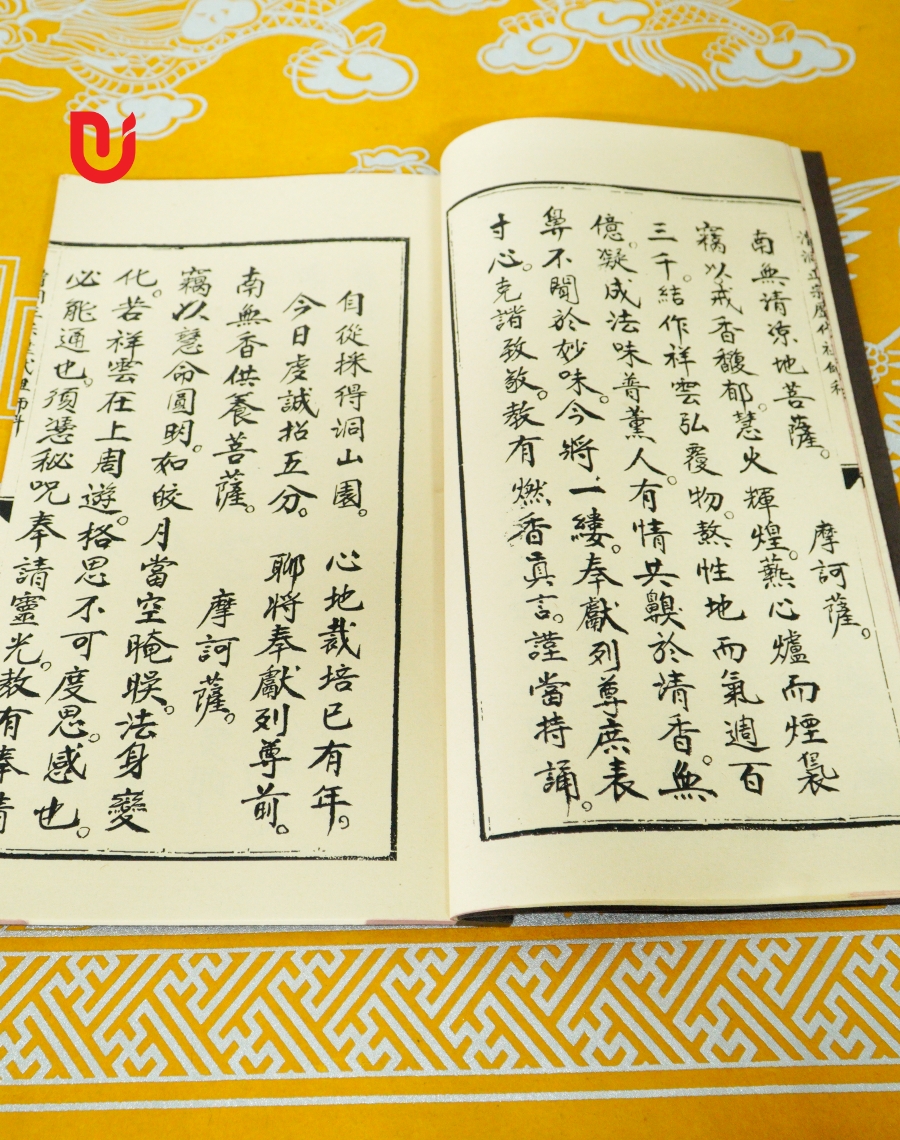 南無清凉地菩薩。 摩訶薩。
竊以戒香馥郁。慧火輝煌。爇心爐而煙裊
三千。結作祥雲弘覆物。熬性地而氣週百
億。凝成法味普薰人。有情共齅於清香。無
鼻不聞於妙味。今將一縷。奉獻列尊庶表
寸心。克諧致敬。教有燃香真言。謹當持誦。
自從採得洞山園。 心地裁培已有年。
今日虔誠招五分。 聊將奉獻列尊前。
南無香供養菩薩。 摩訶薩。
竊以慧命圓明。如皎月當空晻暎。法身變
化。若祥雲在上周遊。格思不可度思。感也
必能通也。須憑秘呪奉請靈光。教有奉請